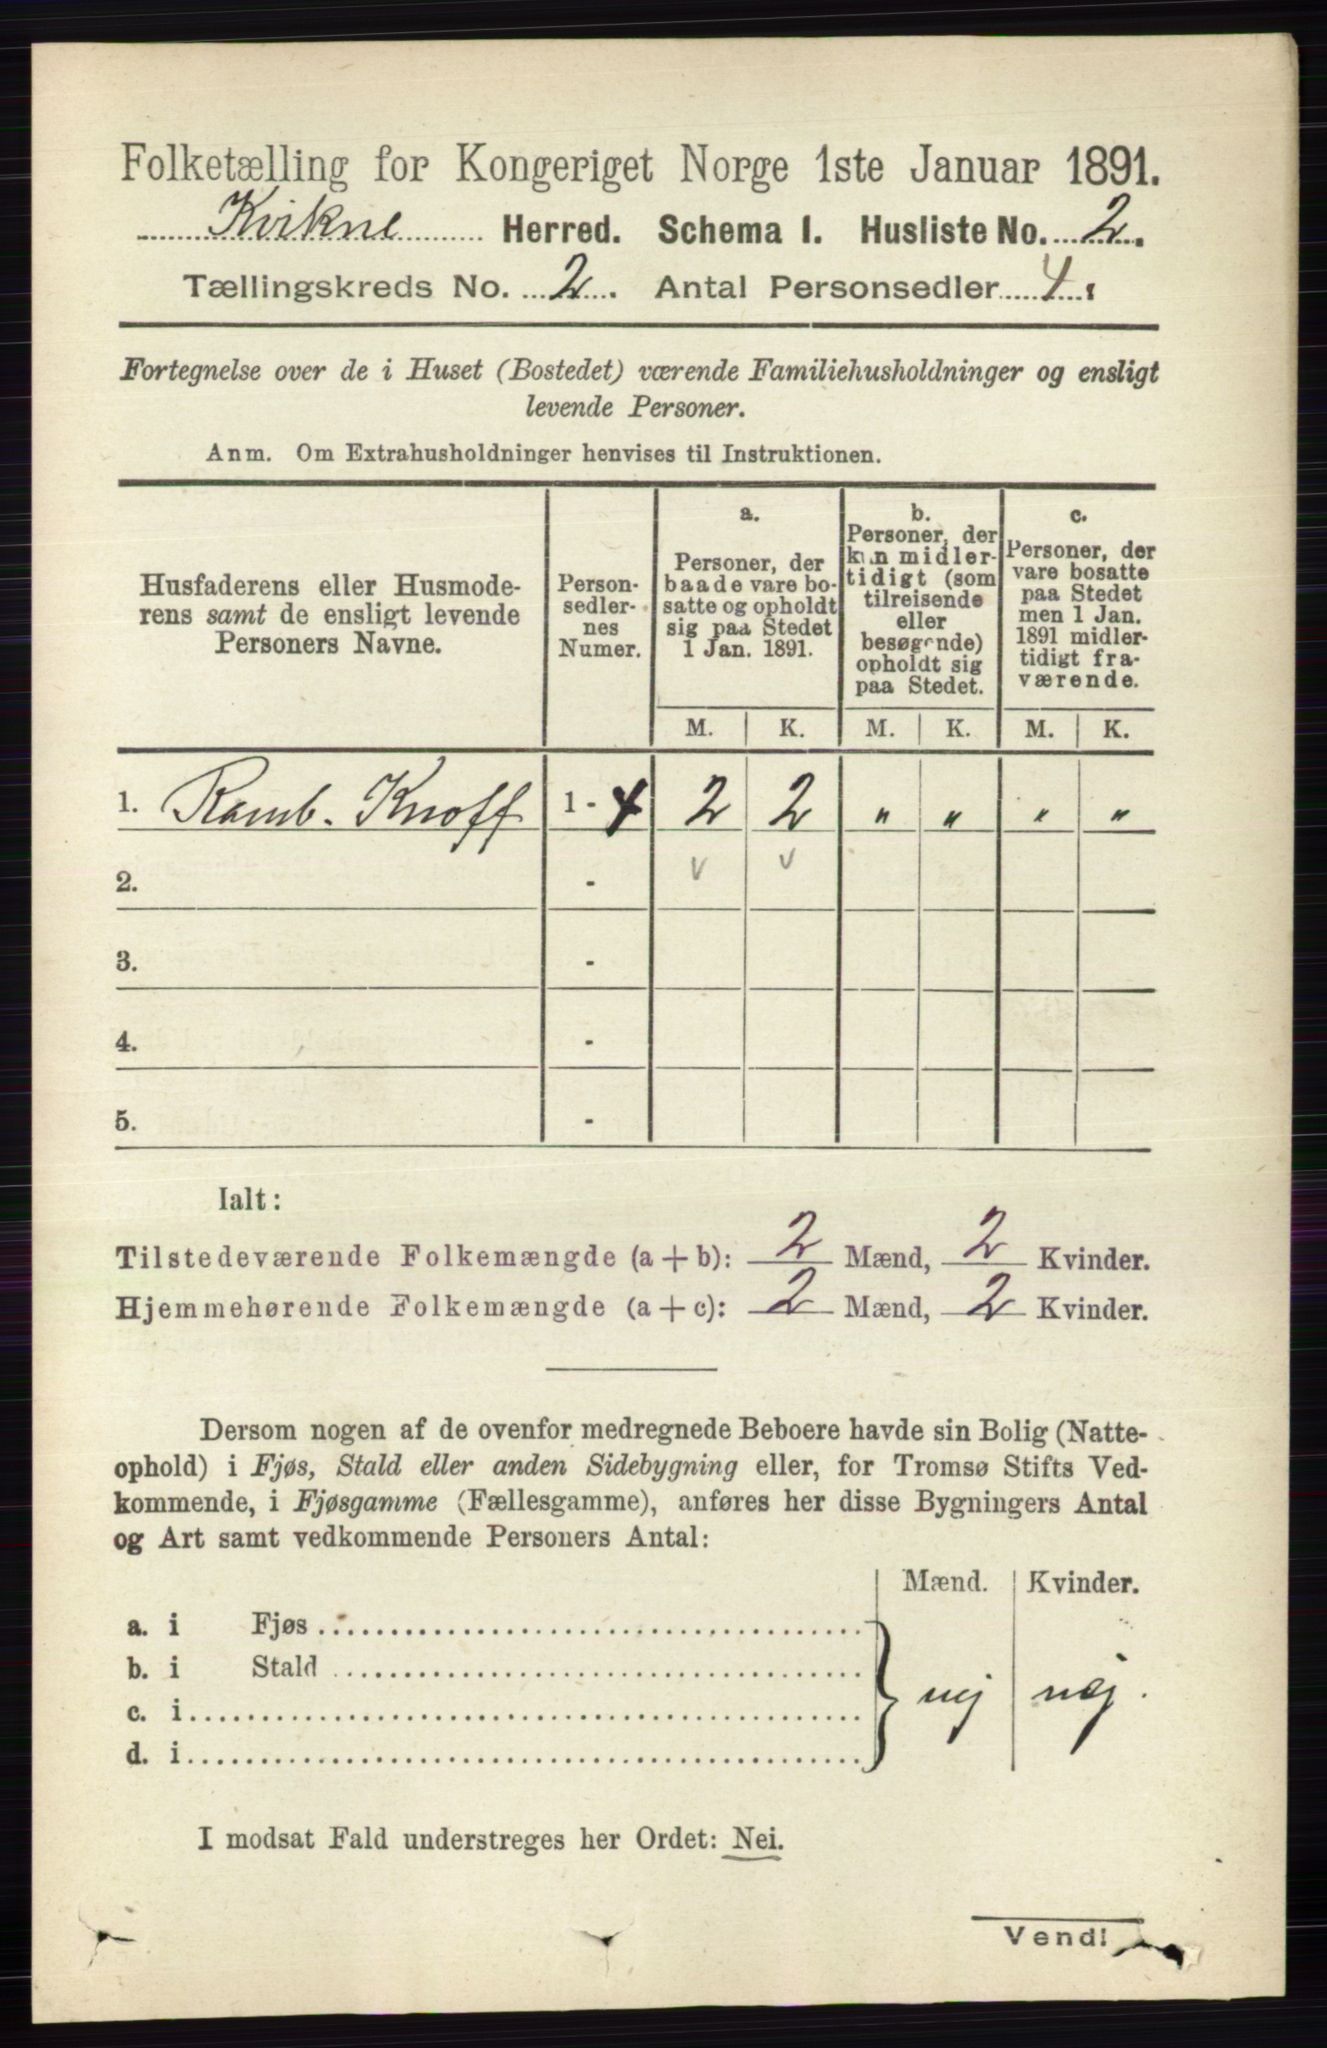 Folketælling for Kongeriget Norge 1ste Januar 1891.
Kvikne Herred. Schema I. Husliste No. 2.
Tællingskreds No. 2. Antal Personsedler 4.
Fortegnelse over de i Huset (Bostedet) værende Familiehusholdninger og ensligt
levende Personer.
Anm. Om Extrahusholdninger henvises til Instruktionen.
Husfaderens eller Husmode-
rens samt de ensligt levende
Personers Navne.
Person-
sedler-
nes
Numer.
a.
Personer, der
baade vare bo-
satte og opholdt
sig paa Stedet
1 Jan. 1891.
b.
Personer, der
kun midler-
tidigt (som
tilreisende
eller
besøgende)
opholdt sig
paa Stedet.
c.
Personer, der
vare bosatte
paa Stedet
men 1 Jan.
1891 midler-
tidigt fra-
værende.
M. K. M. K. M. K.
1. Ramb. Knoff 1 - 4 2 2 " " " "
2. - v v
3. -
4. -
5. -
Ialt:
Tilstedeværende Folkemængde (a + b): 2 Mænd, 2 Kvinder.
Hjemmehørende Folkemængde (a + c): 2 Mænd, 2 Kvinder.
Dersom nogen af de ovenfor medregnede Beboere havde sin Bolig (Natte-
ophold) i Fjøs, Stald eller anden Sidebygning eller, for Tromsø Stifts Ved-
kommende, i Fjøsgamme (Fællesgamme), anføres her disse Bygningers Antal
og Art samt vedkommende Personers Antal:
Mænd. Kvinder.
a. i Fjøs
b. i Stald
c. i
d. i
nej nej.
I modsat Fald understreges her Ordet: Nei.
Vend!